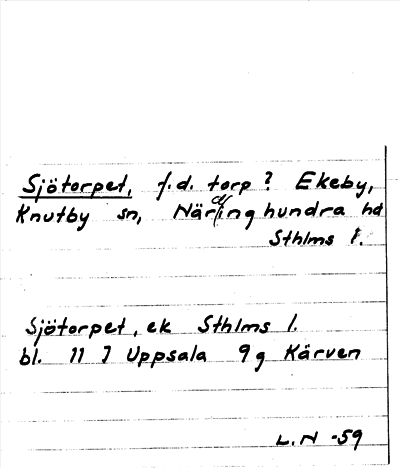 Sjötorpet, f.d. torp? Ekeby,
Knutby sn, Närdinghundra hd
Sthlms l.
Sjötorpet, ek Sthlms l.
bl. 11 I Uppsala 9g Kärven
L.N -59